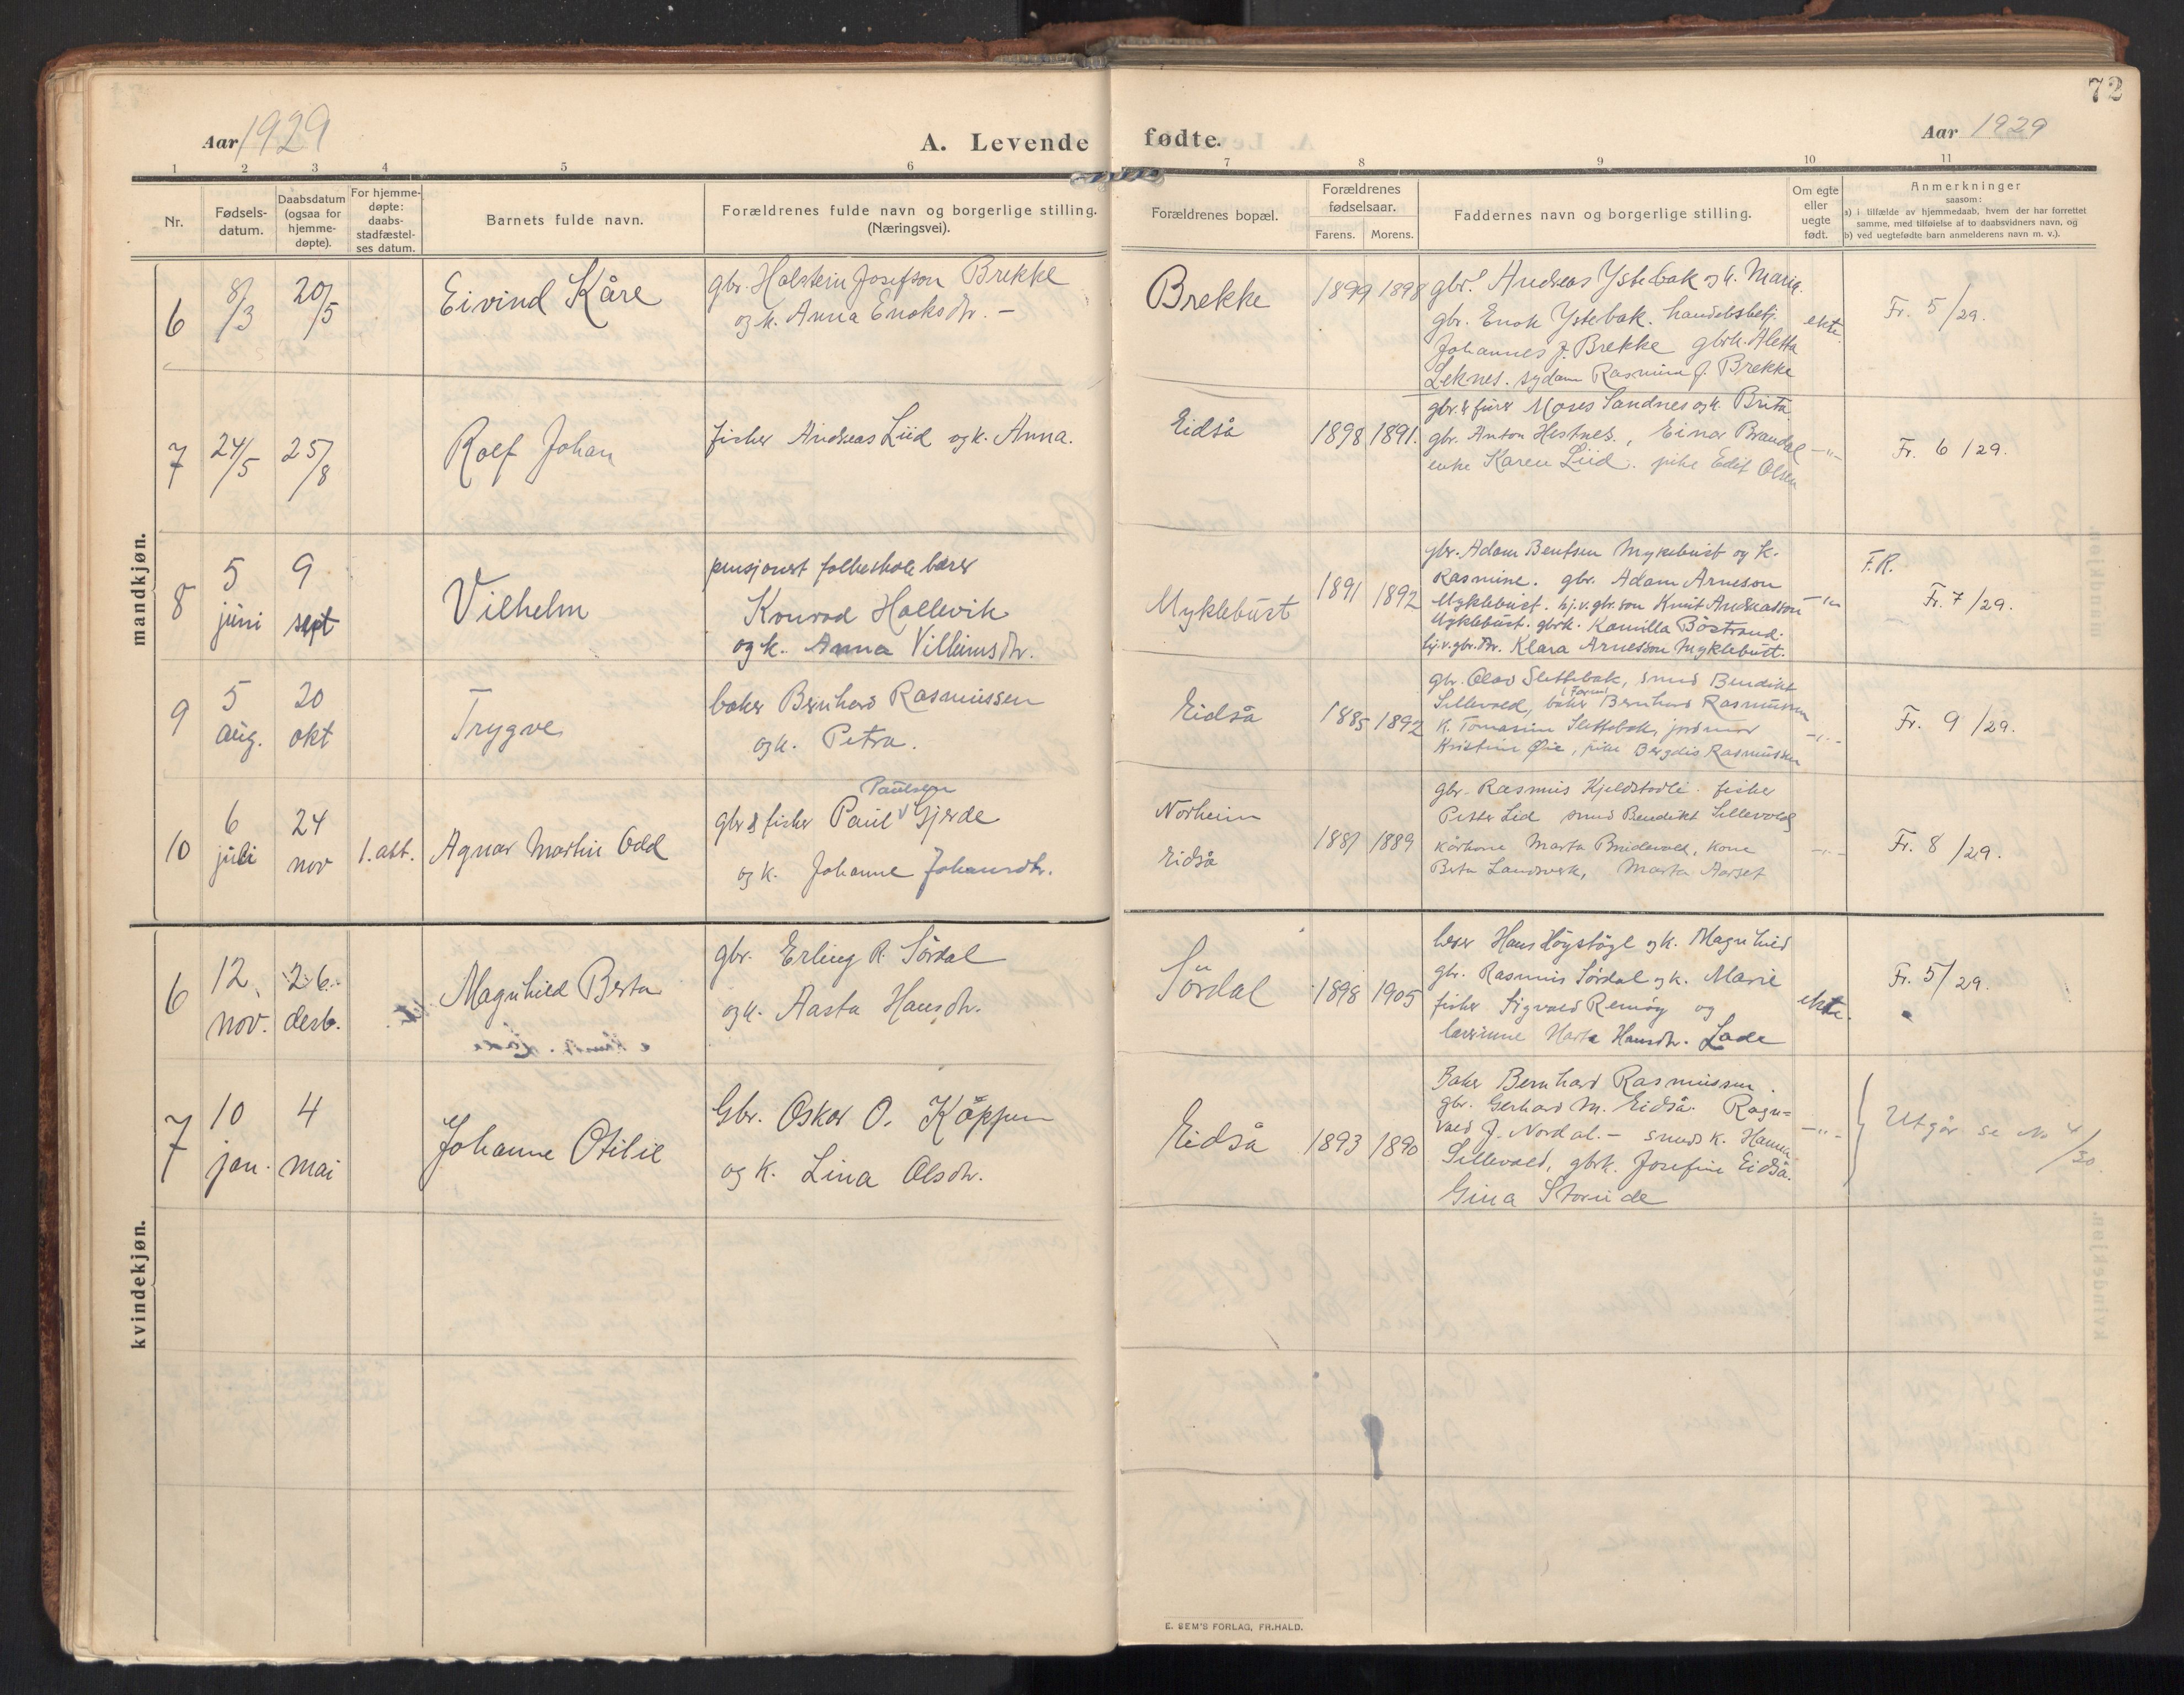 72
Aar 1929
A. Levende
fødte.
Aar 1929
1 2 3 4 5 6 7 8 9 10 11
Nr.
Fødsels-
datum.
Daabsdatum
(ogsaa for
hjemme-
døpte).
For hjemme-
døpte:
daabs-
stadfæstel-
ses datum.
Barnets fulde navn.
Forældrenes fulde navn og borgerlige stilling.
(Næringsvei).
Forældrenes bopæl.
Forældrenes
fødselsaar.
Farens. Morens.
Faddernes navn og borgerlige stilling.
Om egte
eller
uegte
født.
Anmerkninger
saasom:
a) i tilfælde av hjemmedaab, hvem der har forrettet
samme, med tilføielse af to daabsvidners navn, og
b) ved uegtefødte barn anmelderens navn m. v.).
mandkjøn.
6 8/3 20/5 Eivind Kåre
gbr. Holstein Josefson Brekke
og k. Anna Enoksdtr. -
Brekke 1899 1898
gbr. Andreas Ystebak og k. Marie.
gbr. Enok Ystebak. handelsbetj.
Johannes J. Brekke gbrk. Aletta
Leknes. sydam Rasmine J. Brekke
ekte.
Fr. 5/29.
7 24/5 25/8 Rolf Johan
fisker Andreas Liid og k. Anna.
Eidså 1898 1891.
gbr. & Moses Sandnes og k. Brita
gbr. Anton Hestnes., Einar Brandal
enke Karen Liid. pike Edit Olsen
-"-
Fr. 6/29.
8 5 juni 9 sept Vilhelm
pensjonert folkeskolelærer
Konrad Hallevik
og k. Anna Villumsdtr.
Myklebust 1891 1892
gbr. Adam Bentsen Myklebust og k.
Rasmine. gbr. Adam Arneson
Myklebust. hj.v.gbr.son Knut Andreasson
Myklebust. gbrk. Kamilla Böstrand.
hj.v.gbr.dtr. Klara Arnesson Myklebust.
-"-
F.R.
Fr. 7/29.
9 5 aug. 20 okt Trygve
baker Bernhard Rasmussen
og k. Petra.
Eidså 1885 1892
gbr. Olav Slettebak, smed Bendikt
Sillevold, baker (Faren) Bernhard Rasmussen
k. Tomasine Slettebak, jordmor
Kristine Øie, pike Bergdis Rasmussen
-"-
Fr. 9/29.
10 6 juli 24 nov 1. att. Agnar Martin Odd
Paulsen
gbr & fisker Paul V Gjerde
og k. Johanne Johansdtr.
Norheim
Eidså
1881 1889
gbr. Rasmus Kjeldstadli. fisker
Petter Lid smed Bendikt Sillevold
kårkone Marta Breidevold, kone
Berta Landsverk, Marta Aarset
-"-
Fr. 8/29.
kvindekjøn.
6 12 nov. 26. desb. Magnhild Berta
gbr. Erling R. Sördal
og k. Aasta Hansdtr.
Sördal 1898 1905
lærer Hans Høgstøyl og k. Magnhild
gbr. Rasmus Sördal og k. Marie
fisker Sigvald Remöy og
lærerinne Marta Hansdtr. Lade
ekte.
Fr. 5/29.
7 10 jan. 4 mai Johanne Otilie
Gbr. Oskar O. Köppen
og k. Lina Olsdtr.
Eidså 1893 1890
Baker Bernhard Rasmussen.
gbr. Gerhard M. Eidså. Ragn=
vald J. Nordal. - smedk. Hanna
Sillevold, gbrk. Josefine Eidså.
Gina Storeide
-"-
Utgår se No 4/30.
E. SEM'S FORLAG, FR.HALD.